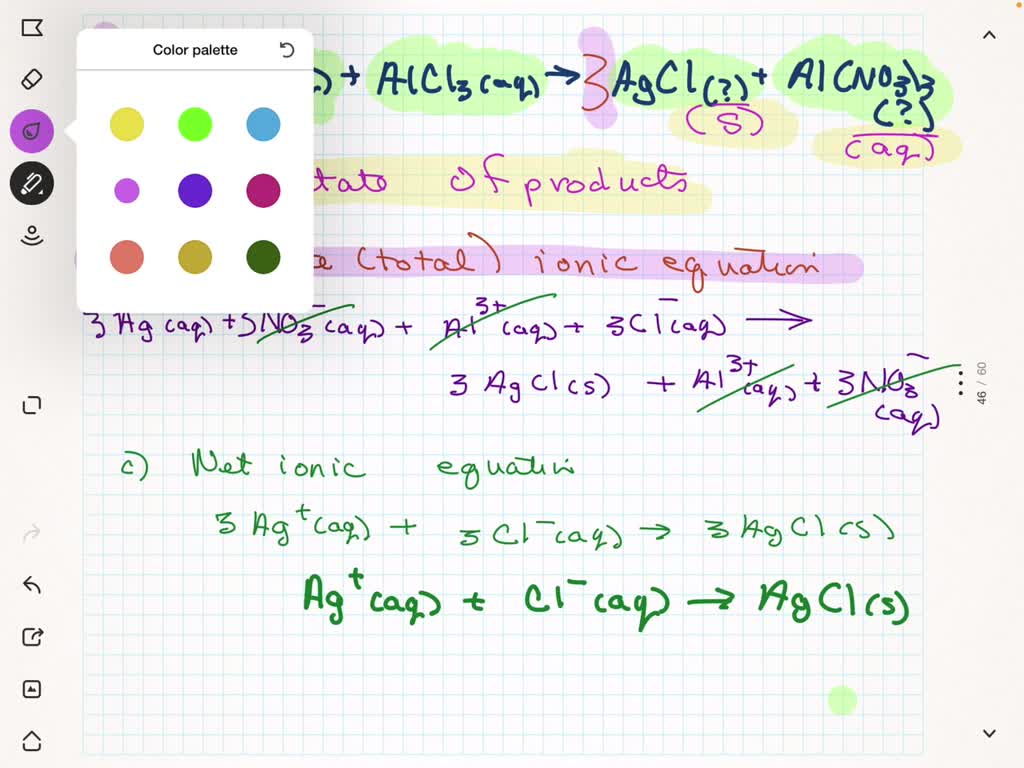 Color palette
) + AlCl₃ (aq) → 3 AgCl (?) + Al(NO₃)₃ (?)
(s) (aq)
tate of products
e (total) ionic equation
3 Ag (aq) + 3NO₃⁻ (aq) + Al³⁺ (aq) + 3Cl⁻ (aq) →
3 AgCl (s) + Al³⁺ (aq) + 3NO₃⁻ (aq)
46 / 60
c) Net ionic equation
3 Ag⁺ (aq) + 3 Cl⁻ (aq) → 3 AgCl (s)
Ag⁺ (aq) + Cl⁻ (aq) → AgCl (s)